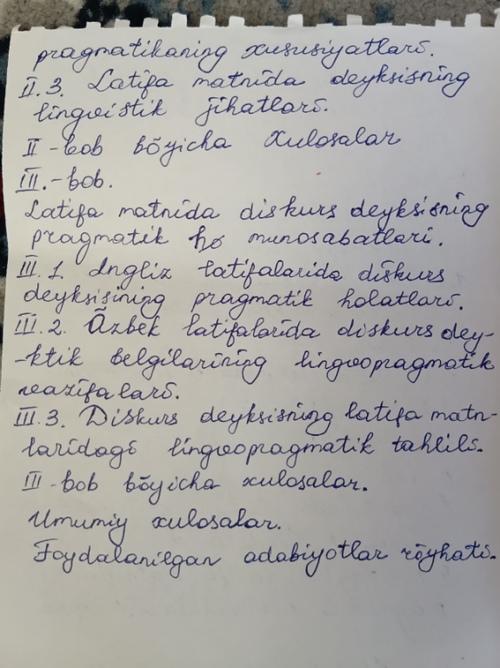 pragmatikaning xususiyatlari.
II.3. Latifa matnida deyksisning
lingvistik jihatlari.
II-bob bõyicha Xulosalar
III.-bob.
Latifa matnida diskurs deyksisning
pragmatik munosabatlari.
III.1. Ingliz latifalarida diskurs
deyksisining pragmatik holatlari.
III.2. Õzbek latifalarida diskurs dey-
-ktik belgilarining lingvopragmatik
vazifalari.
III.3. Diskurs deyksisning latifa matn-
laridagi lingvopragmatik tahlili.
III-bob bõyicha xulosalar.
Umumiy xulosalar.
Foydalanilgan adabiyotlar rõyhati.